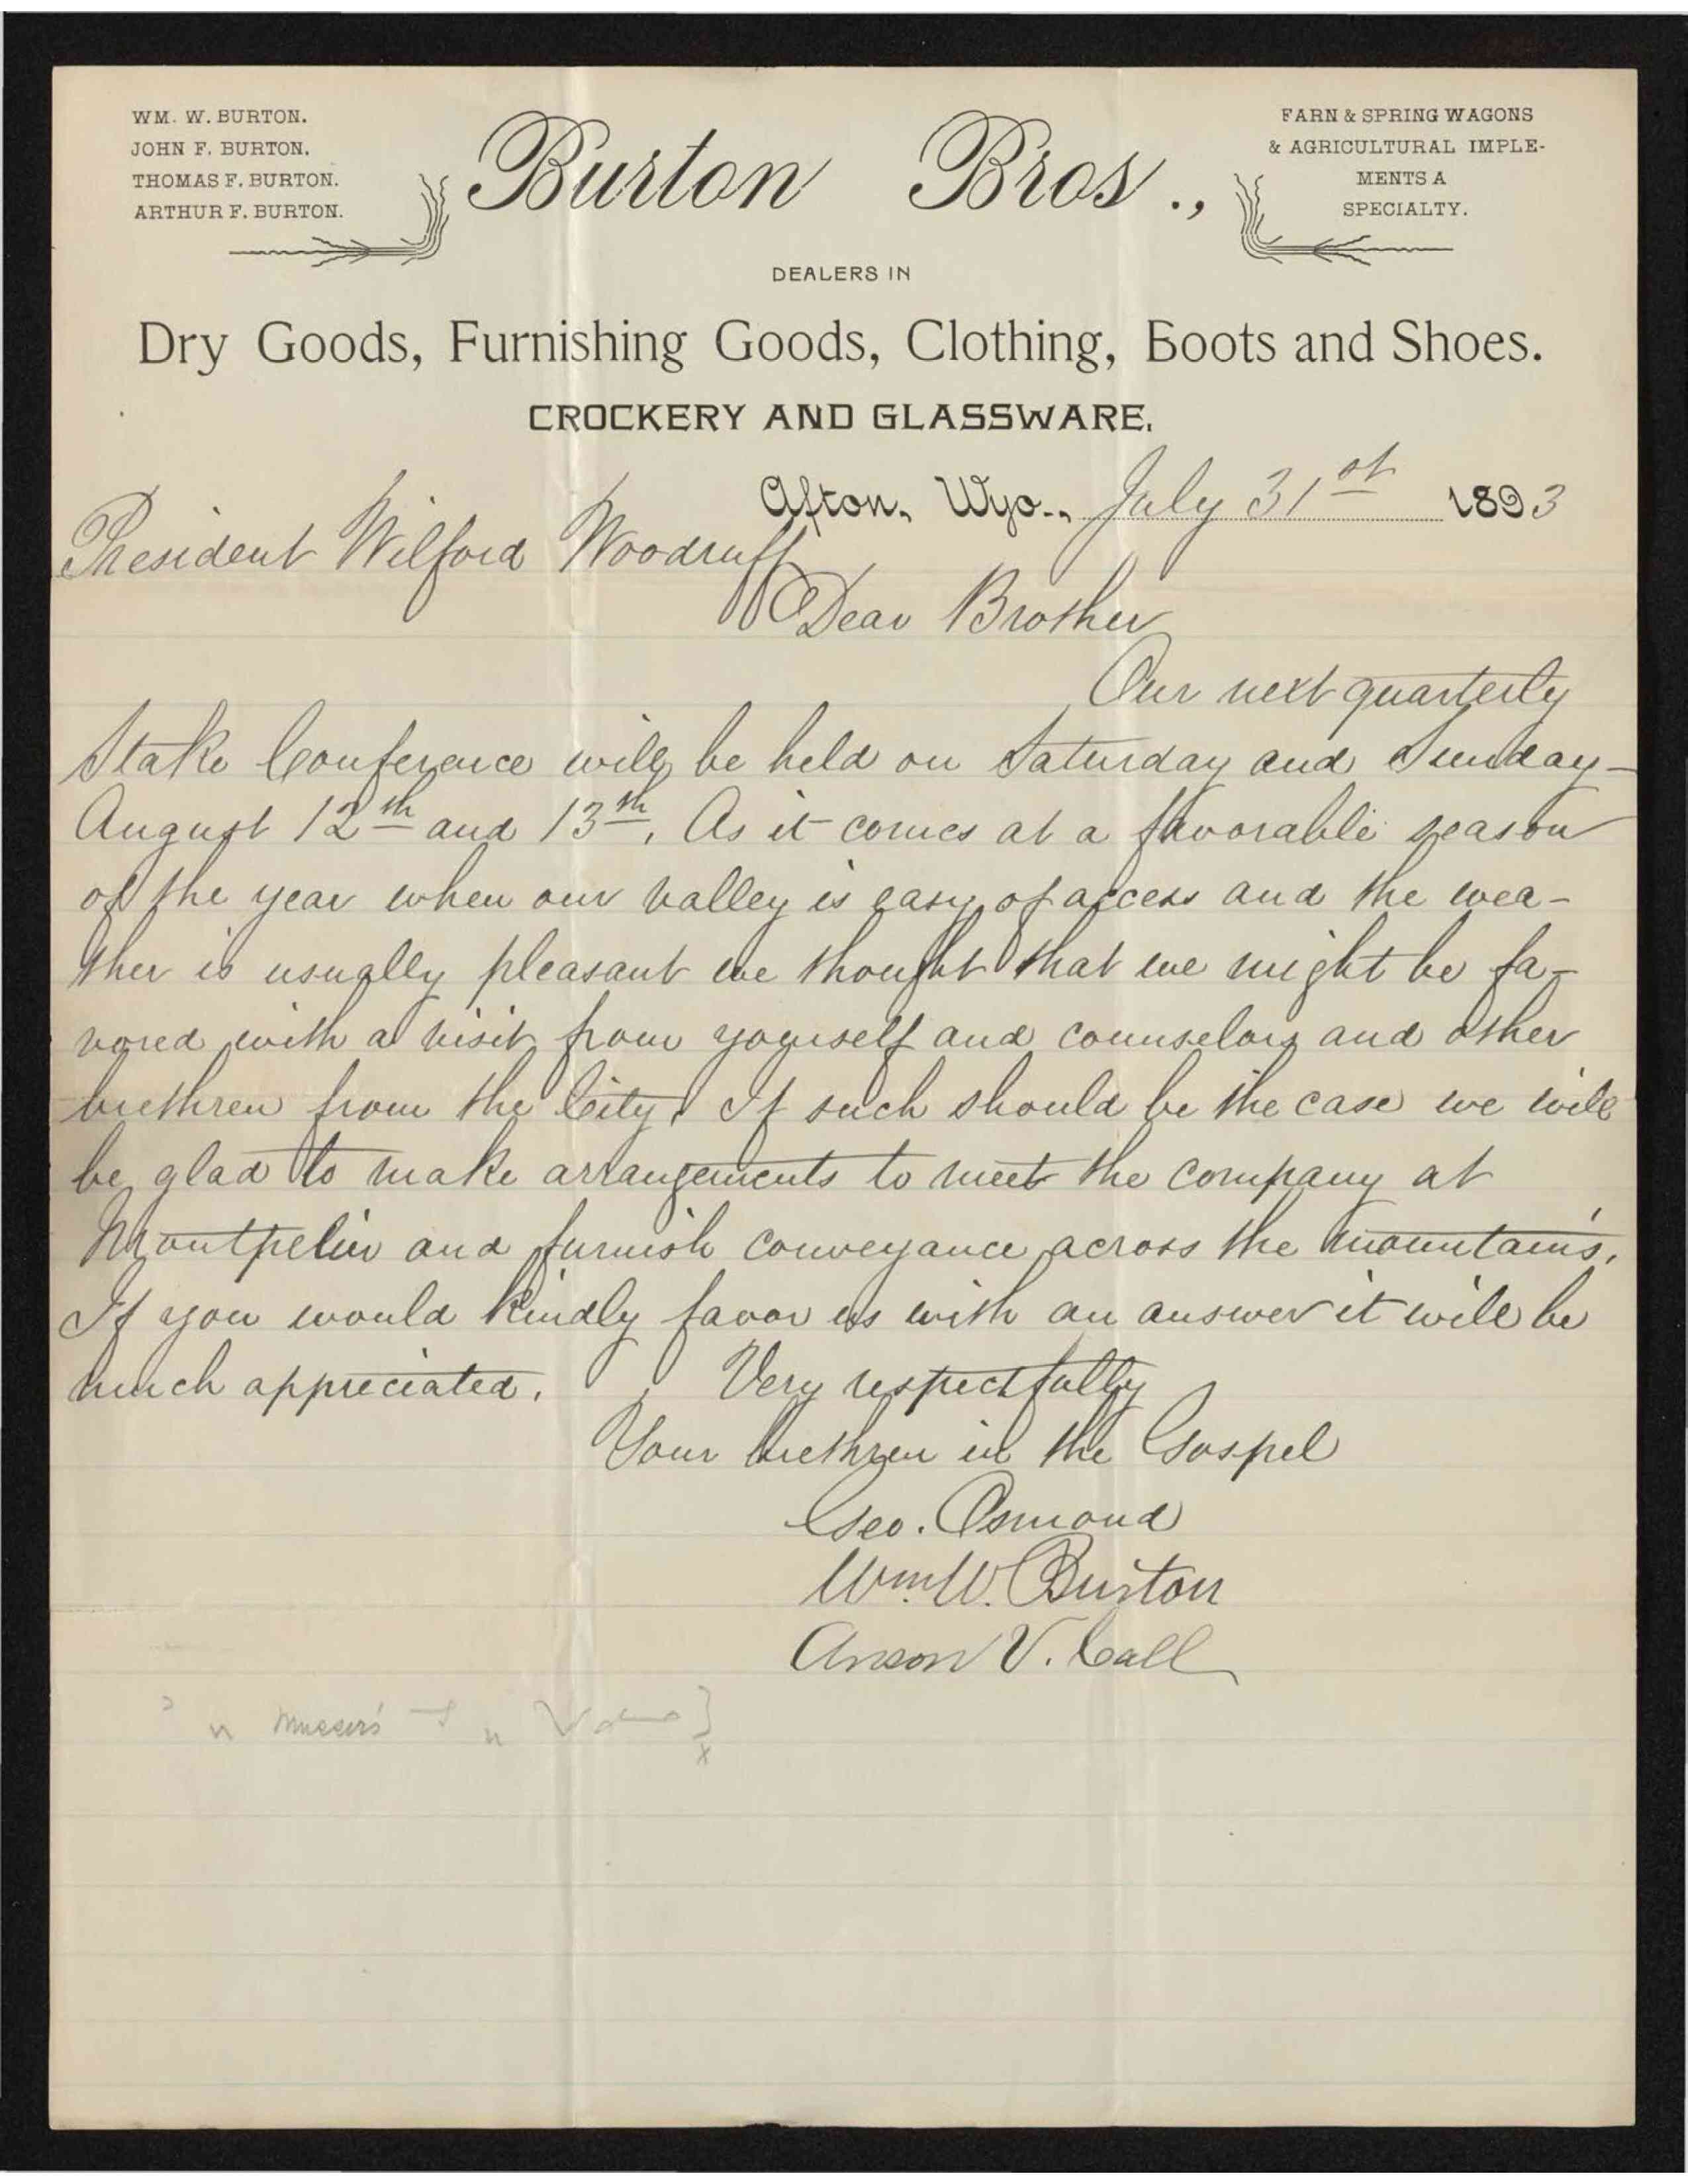 WM. W. BURTON.
JOHN F. BURTON.
THOMAS F. BURTON.
ARTHUR F. BURTON.
Burton Bros.,
FARN & SPRING WAGONS
& AGRICULTURAL IMPLE-
MENTS A
SPECIALTY.
DEALERS IN
Dry Goods, Furnishing Goods, Clothing, Boots and Shoes.
CROCKERY AND GLASSWARE.
Afton, Wyo., July 31st 1893
President Wilford Woodruff
Dear Brother
Our next quarterly
Stake Conference will be held on Saturday and Sunday
August 12th and 13th. As it comes at a favorable season
of the year when our valley is easy of access and the wea-
ther is usually pleasant we thought that we might be fa-
vored with a visit from yourself and counselors and other
brethren from the City. If such should be the case we will
be glad to make arrangements to meet the company at
Montpelier and furnish conveyance across the mountains.
If you would kindly favor us with an answer it will be
much appreciated. Very respectfully
Your brethren in the Gospel
Geo. Osmond
Wm. W. Burton
Anson V. Call